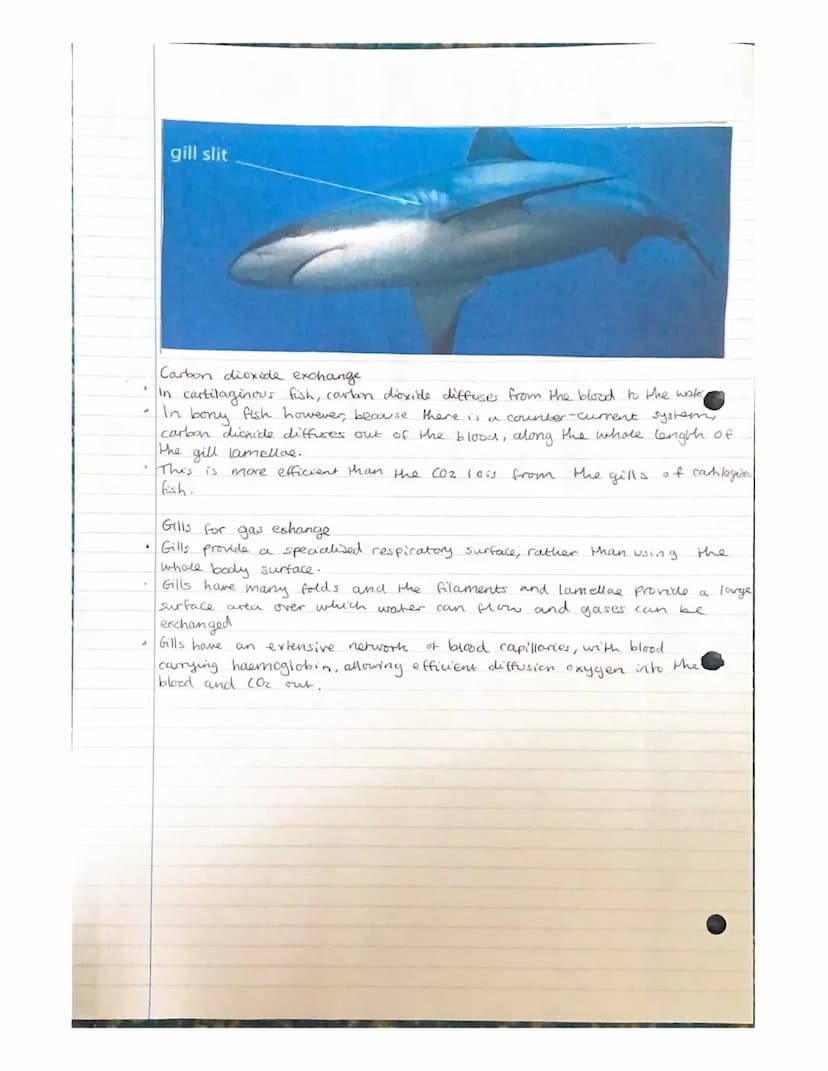 gill slit
Carbon dioxide exchange
• In cartilaginous fish, carbon dioxide diffuses from the blood to the
• In bony fish however, because there is a counter-current system,
carbon dioxide diffuses out of the blood, along the whole length of
the gill lamellae.
• This is more efficient than the CO2 loss from the gills of
fish.
Gills for gas exhange
• Gills provide a specialised respiratory surface, rather than using the
whole body surface.
• Gills have many folds and the filaments and lamellae provide a large
surface area over which water can flow and gases can be
exchanged
• Gills have an extensive network of blood capillaries, with blood
carrying haemoglobin, allowing efficient diffusion oxygen into the
blood and CO2 out.